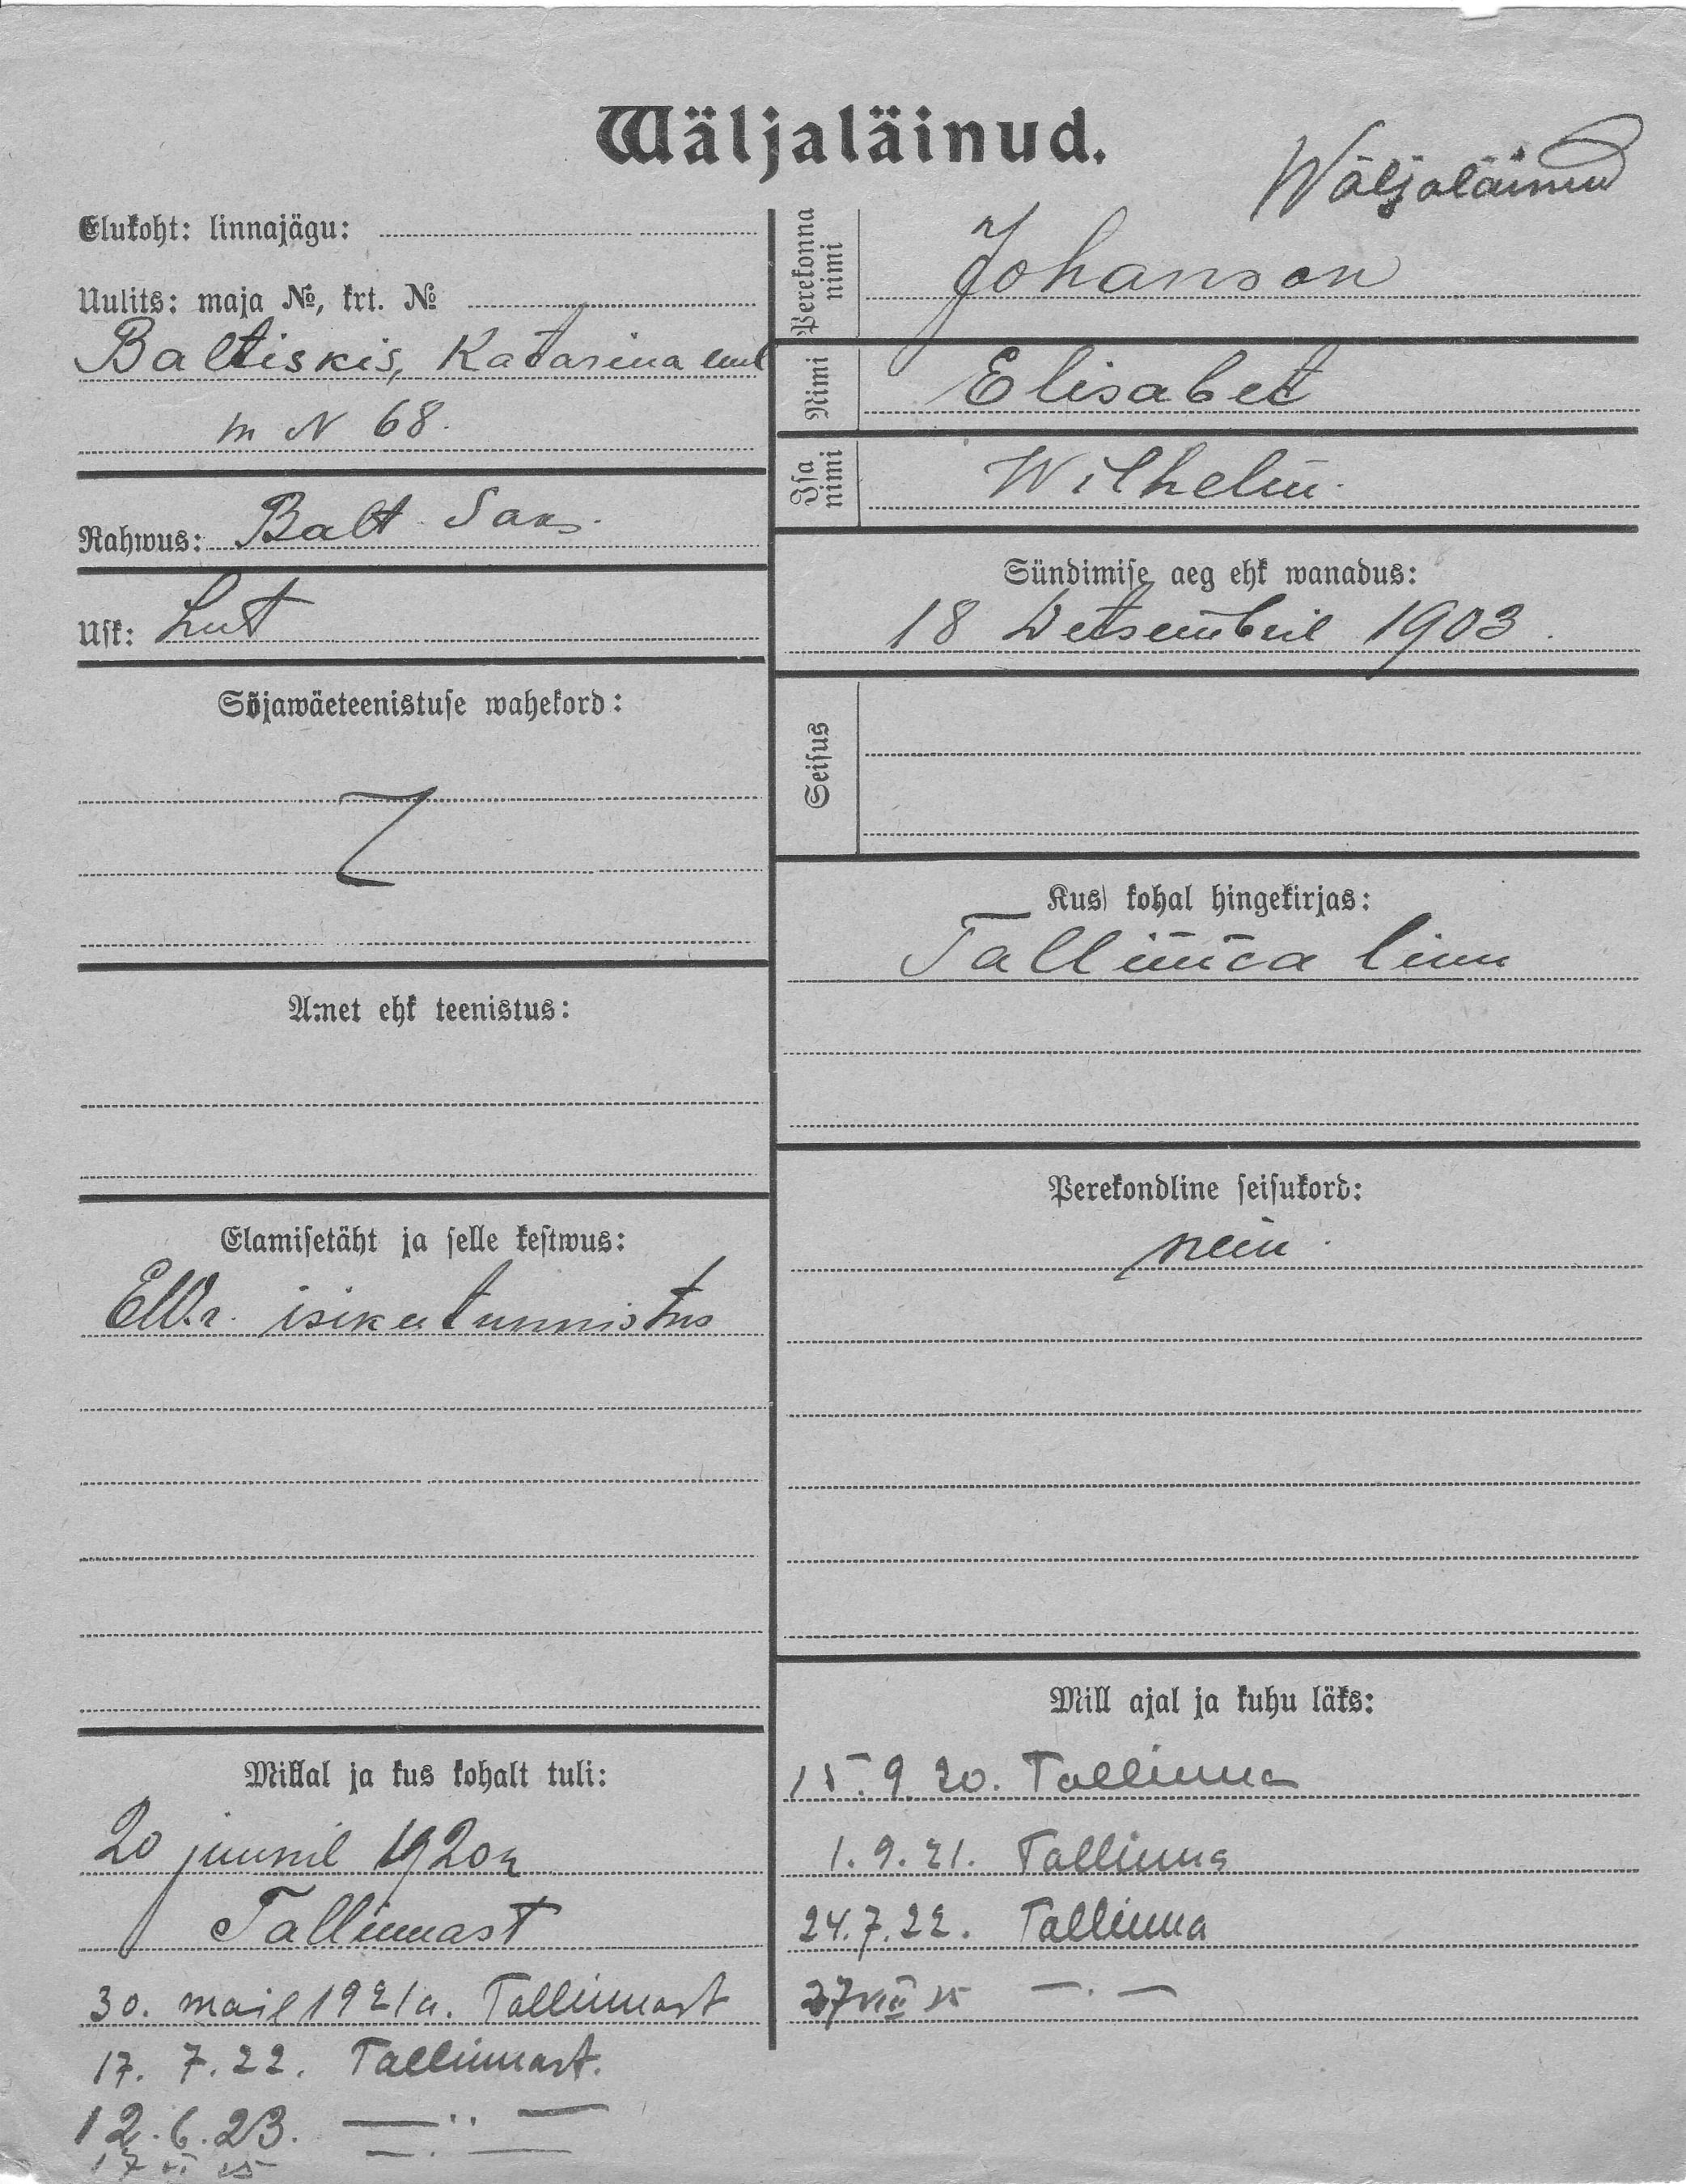 Wäljaläinud.
Wäljaläinud
Elukoht: linnajägu:
Uulits: maja №, krt. №
Baltiskis, Katarina uul
m N 68.
Rahwus: Balt. Saks.
Usk: Lut
Sõjawäeteenistuse wahekord:
Amet ehk teenistus:
Elamisetäht ja selle kestwus:
E.W.r. isikutunnistus
Millal ja kus kohalt tuli:
20 juunil 1920a
Tallinnast
30. mail 1921a. Tallinnast
17. 7. 22. Tallinnast.
12. 6. 23. —..—
17 VI 25 —.—
Perekonna
nimi
Johanson
Nimi
Elisabet
Isa
nimi
Wilhelm.
Sündimise aeg ehk wanadus:
18 Detsembril 1903.
Seisus
Kus kohal hingekirjas:
Tallinna linn
Perekondline seisukord:
neiu.
Mill ajal ja kuhu läks:
15. 9. 20. Tallinna
1. 9. 21. Tallinna
24. 7. 22. Tallinna
27 VIII 25 —.—